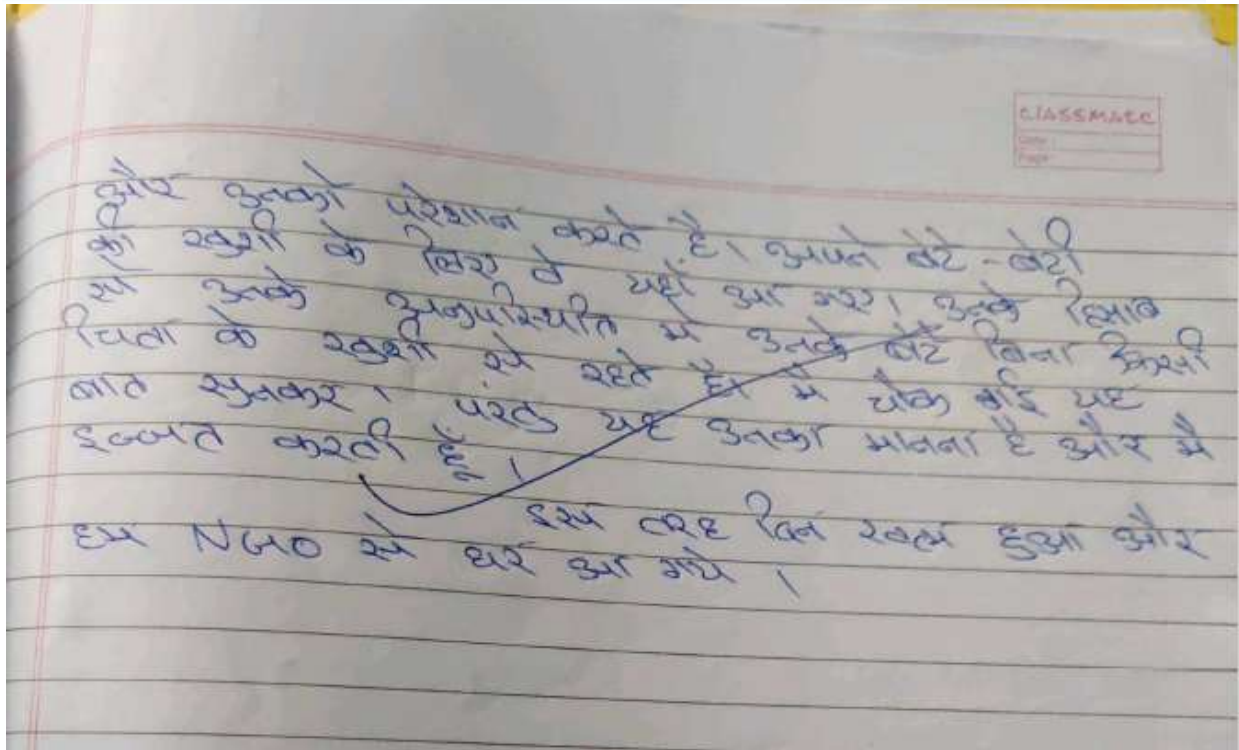 classmate
Date :
Page :
और उनको परेशान करते है। अपने बेटे - बेटी
की खुशी के लिए वे यहाँ आ गए। उनके हिसाब
से उनके अनुपस्थिति मे उनके बेटे बिना किसी
चिंता के खुशी से रहते है। मै चौक गई यह
बात सुनकर। परंतु यह उनका मानना है और मै
इज्जत करती हूँ।
इस तरह दिन खत्म हुआ और
हम NGO से घर आ गये।